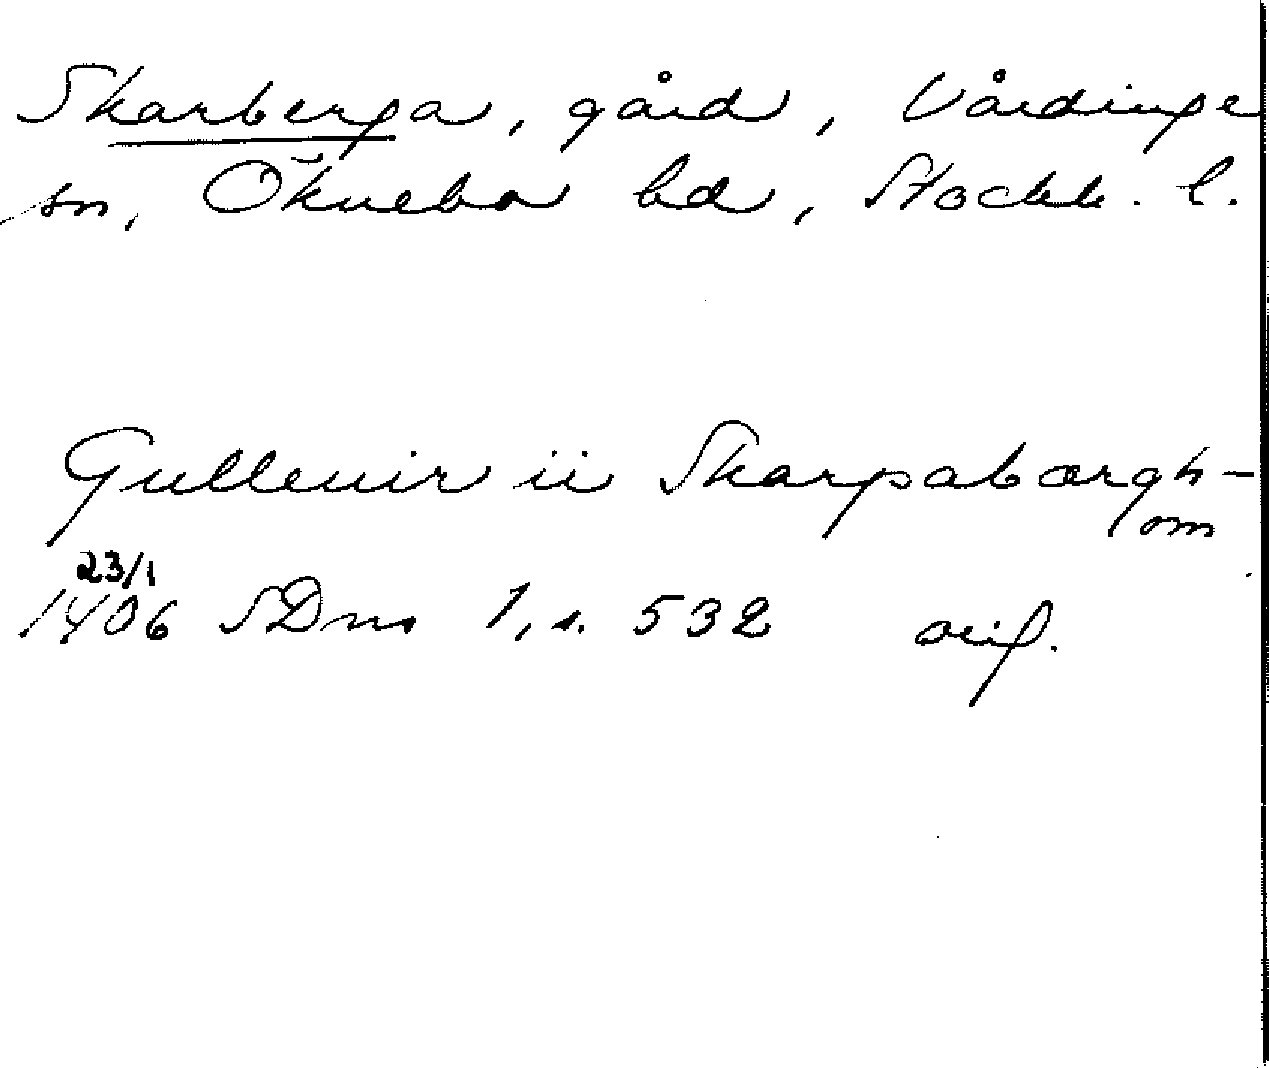 Skarberga, gård, Vårdinge
sn, Öknebo hd, Stockh. l.
Gulleuir ii Skarpabærgh-
om
23/1
1406 SDns 1, s. 532 orig.